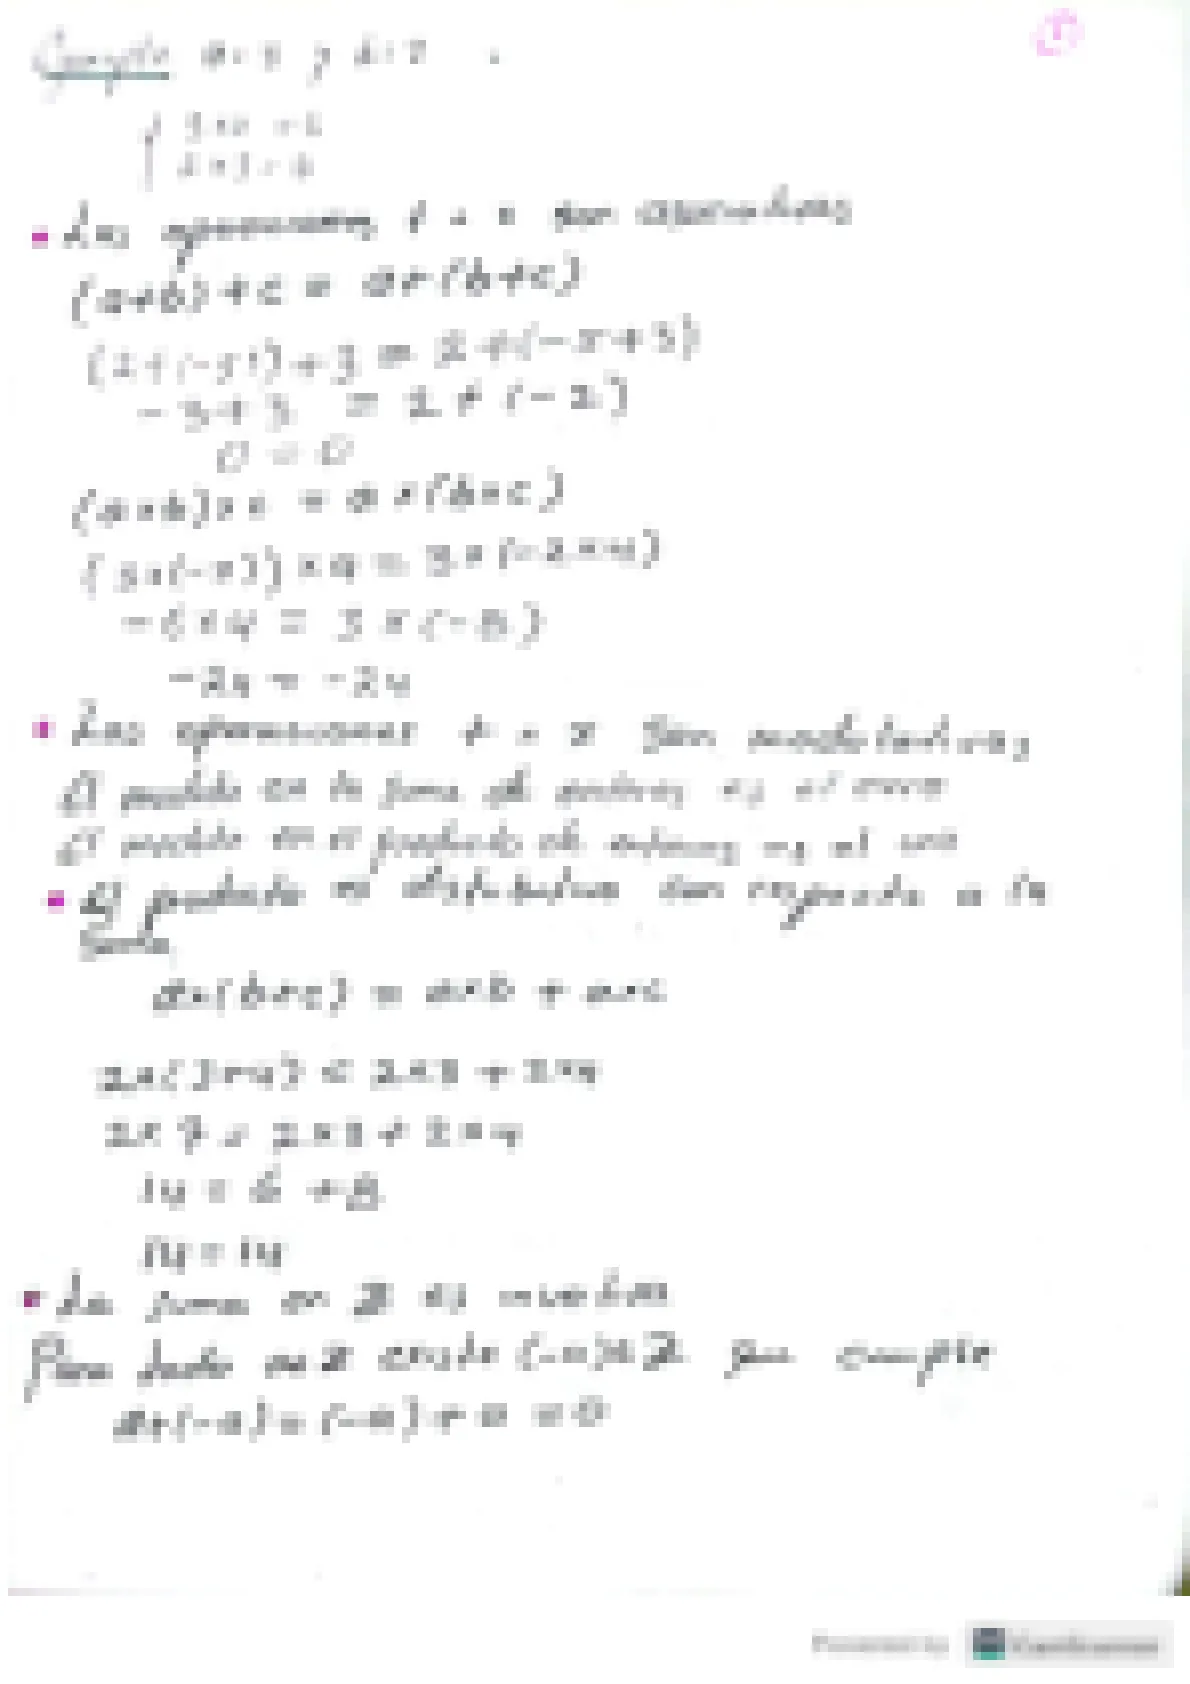 Ejemplo a = 3 y b = 2
3 × 2 = 6
2 × 3 = 6
Las operaciones + y × son asociativas
(a+b)+c = a+(b+c)
= 2+(-5+3)
-3+3 = 2+(-2)
0 = 0
(a×b)×c = a×(b×c)
(3×(-2))×4 = 3×(-2×4)
-6×4 = 3×(-8)
-24 = -24
Las operaciones + y × son modulativas
El modulo en la suma de enteros es el cero
El modulo en el producto de enteros es el uno
El producto es distributivo con respecto a la
Suma
a×(b+c) = a×b + a×c
2×(3+4) = 2×3 + 2×4
2×7 = 2×3 + 2×4
14 = 6 + 8
14 = 14
La suma en Z es invertiva
Para todo a∈Z existe (-a)∈Z que cumple
a+(-a) = (-a)+a = 0
CamScanner